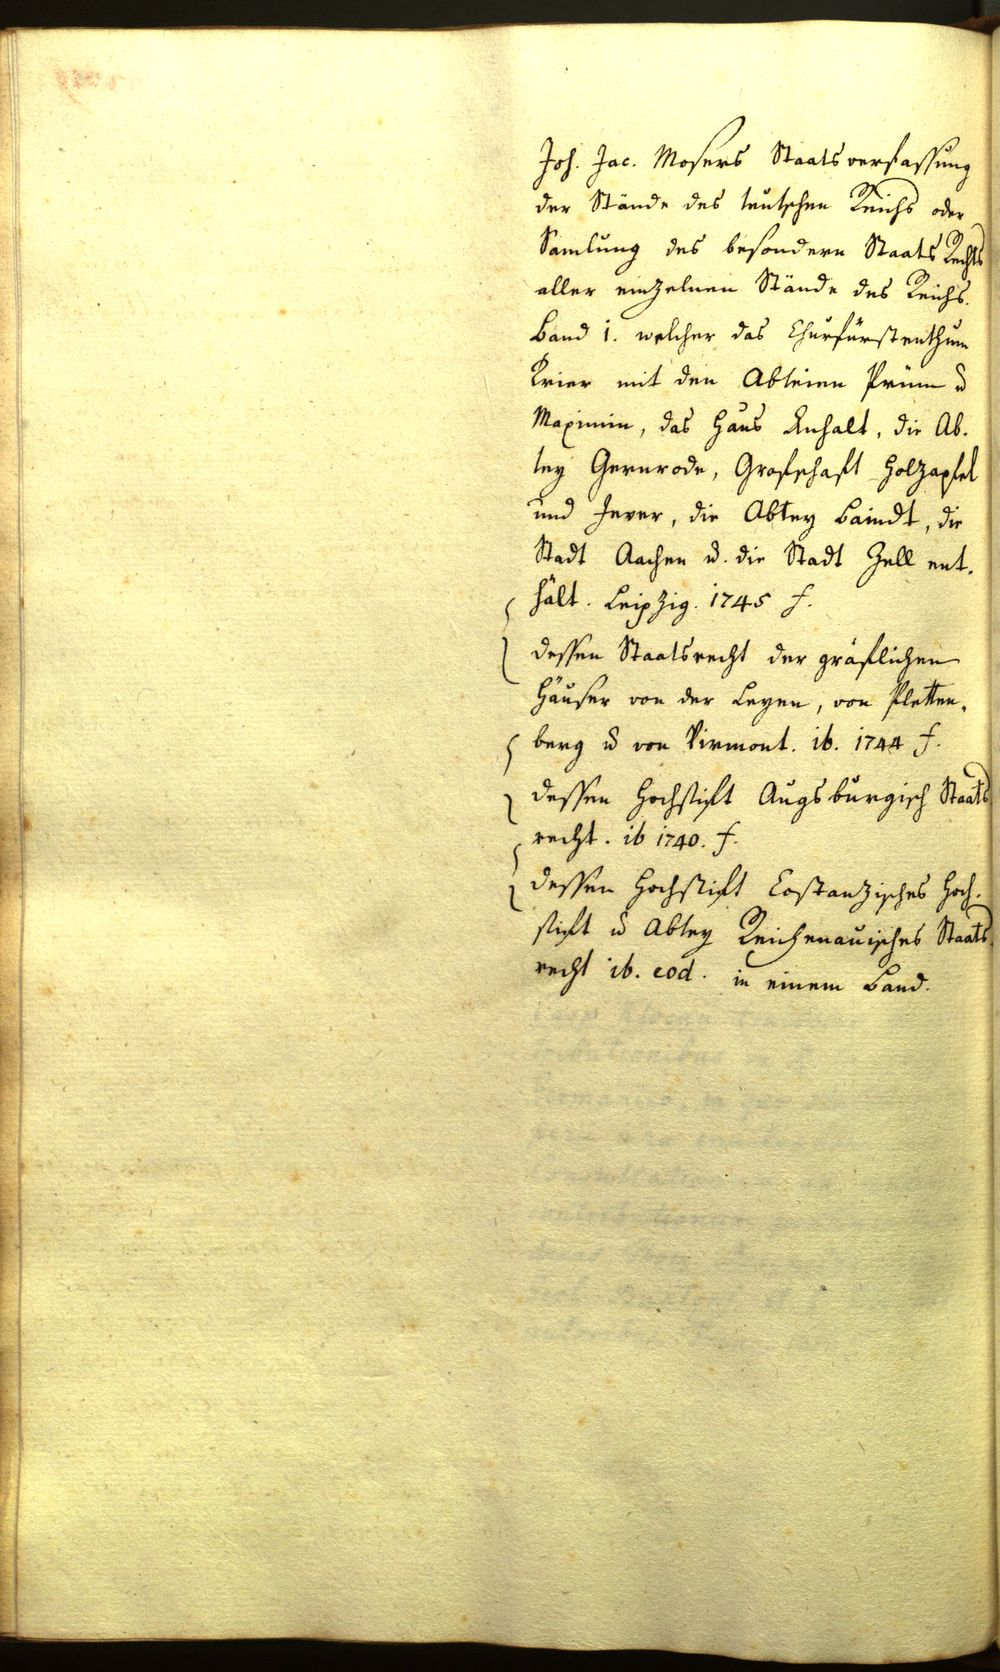 Joh. Jac. Mosers Staatsverfassung
der Stände des teutschen Reichs oder
Samlung des besondern Staats Rechts
aller einzelnen Stände des Reichs.
Band 1. welcher das Churfürstenthum
Trier mit den Abteien Prüm u
Maximin, das Haus Anhalt, die Ab-
tey Gernrode, Grafschaft Holzapfel
und Jever, die Abtey Baindt, die
Stadt Aachen u. die Stadt Zell ent-
hält. Leipzig. 1745 f.
dessen Staatsrecht der gräflichen
Häuser von der Leyen, von Pletten-
berg u von Virmont. ib. 1744 f.
dessen Hochstift Augsburgisch Staats
recht. ib 1740. f.
dessen Hochstift Costanzisches Hoch-
stift u Abtey Reichenauisches Staats
recht ib. eod. in einem Band.